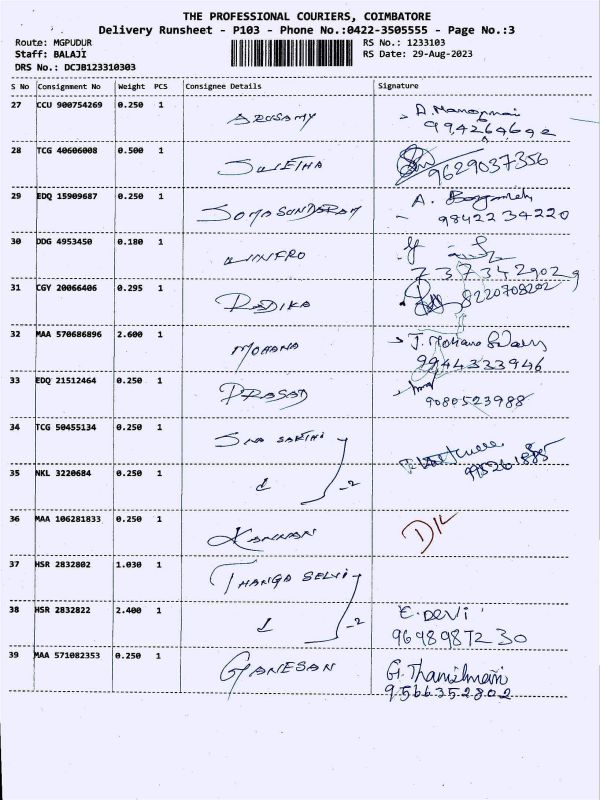 THE PROFESSIONAL COURIERS, COIMBATORE
Delivery Runsheet - P103 - Phone No.:0422-3505555 - Page No.:3
Route: MGPUDUR RS No.: 1233103
Staff: BALAJI RS Date: 29-Aug-2023
DRS No.: DCJB123310303
S No Consignment No Weight PCS Consignee Details Signature
27 CCU 900754269 0.250 1 ARUSAMY
28 TCG 40606008 0.500 1 SUJETHA 9629037356
29 EDQ 15909687 0.250 1 SOMASUNDARAM A.
9842234220
30 DDG 4953450 0.180 1
7373429029
31 CGY 20066406 0.295 1 RADIKA 8220708202
32 MAA 570686896 2.600 1 MOHANA J. Mohana
9944333946
33 EDQ 21512464 0.250 1 PRASAD
9080523988
34 TCG 50455134 0.250 1 SIVA SAKTHI
35 NKL 3220684 0.250 1 -2
36 MAA 106281833 0.250 1 KANNAN D/L
37 HSR 2832802 1.030 1 THANGA SELVI
38 HSR 2832822 2.400 1 -2 E. DEVI
9698987230
39 MAA 571082353 0.250 1 GANESAN G. Thamilmani
9566352802